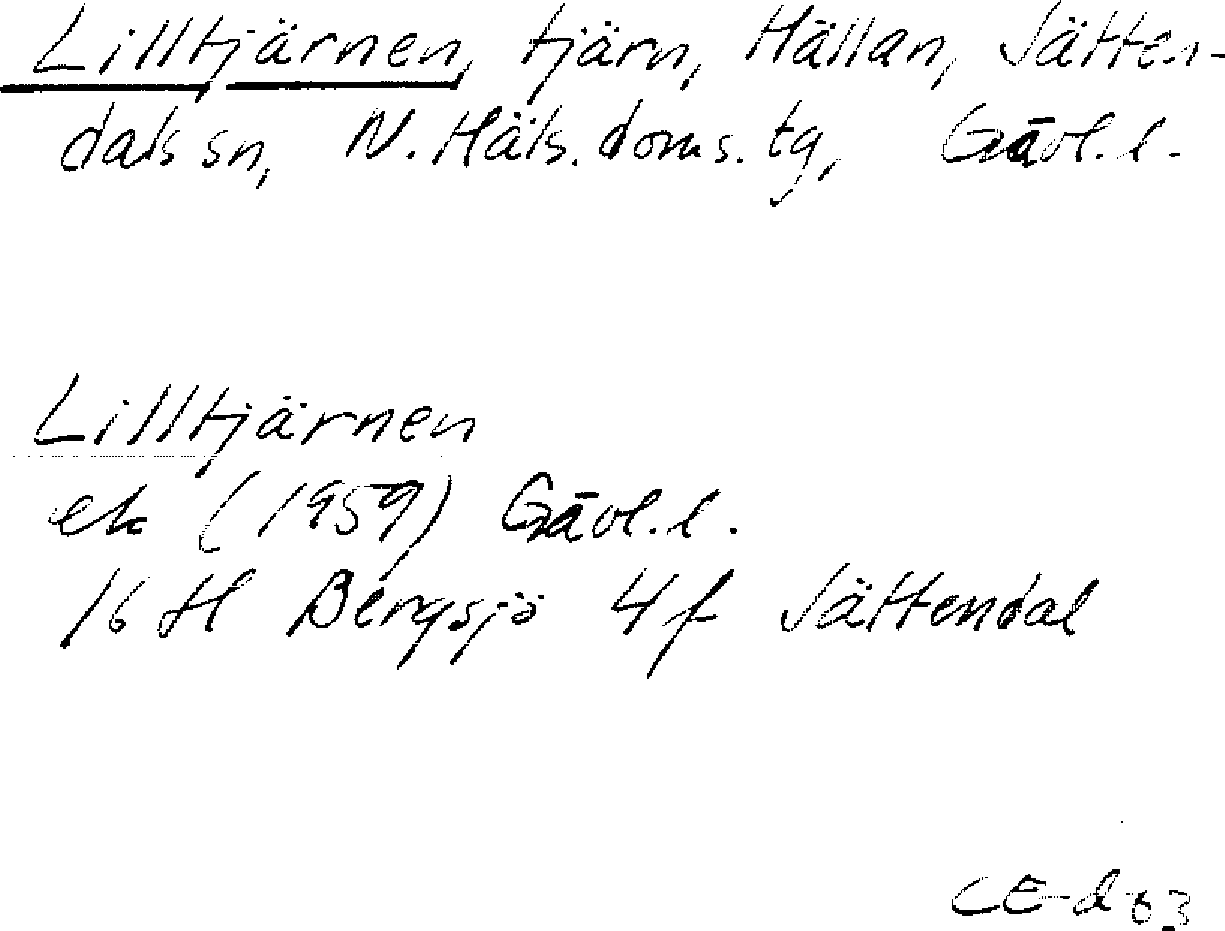 Lilltjärnen, tjärn, Hällan, Jätten-
dals sn, N. Häls. doms. tg, Gävl. l.
Lilltjärnen
ek (1959) Gävl. l.
16 H Bergsjö 4 f Jättendal
CE-d 63